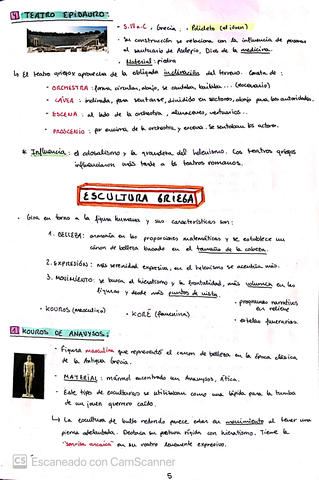 TEATRO EPIDAURO:
• S. IV a.C - Grecia - Policleto (el joven)
• Su construcción se relaciona con la influencia de personas
al santuario de Asclepio, Dios de la medicina.
• Material: piedra
↳ El teatro griego aprovecha de la obligada inclinación del terreno. Consta de:
• ORCHESTRA: forma circular, abajo, se cantaba, bailaba... (escenario)
• CÁVEA: inclinada, para sentarse, dividido en sectores, abajo para las autoridades.
• ESCENA: al lado de la orchestra, almacenes, vestuarios...
• PROSCENIO: por encima de la orchestra, y escena. Se sentaban los actores.
* Influencia: el colosalismo y la grandeza del helenismo. Los teatros griegos
influenciaron más tarde a los teatros romanos.
ESCULTURA GRIEGA
• Gira en torno a la figura humana y sus características son:
1. BELLEZA: armonía en las proporciones matemáticas y se establece un
cánon de belleza basado en el tamaño de la cabeza.
2. EXPRESIÓN: más serenidad expresiva, en el helenismo se acentúa más.
3. MOVIMIENTO: se busca el hieratismo y la frontalidad, más volumen en las
figuras y desde más puntos de vista.
• KOUROS (masculino)
• KORÉ (femenina)
• programas narrativos
en relieve
• estelas funerarias.
KOUROS DE ANAVYSOS:
• Figura masculina que representó el canon de belleza en la época clásica
de la Antigua Grecia.
• MATERIAL: mármol encontrado en Anavysos, Ática.
• Este tipo de esculturas se utilizaban como una lápida para la tumba
de un joven guerrero caído.
↳ La escultura de bulto redondo parece estar en movimiento al tener una
pierna adelantada. Destaca su postura rígida con hieratismo. Tiene la
"sonrisa arcaica" en su rostro levemente expresivo.
5
CS Escaneado con CamScanner